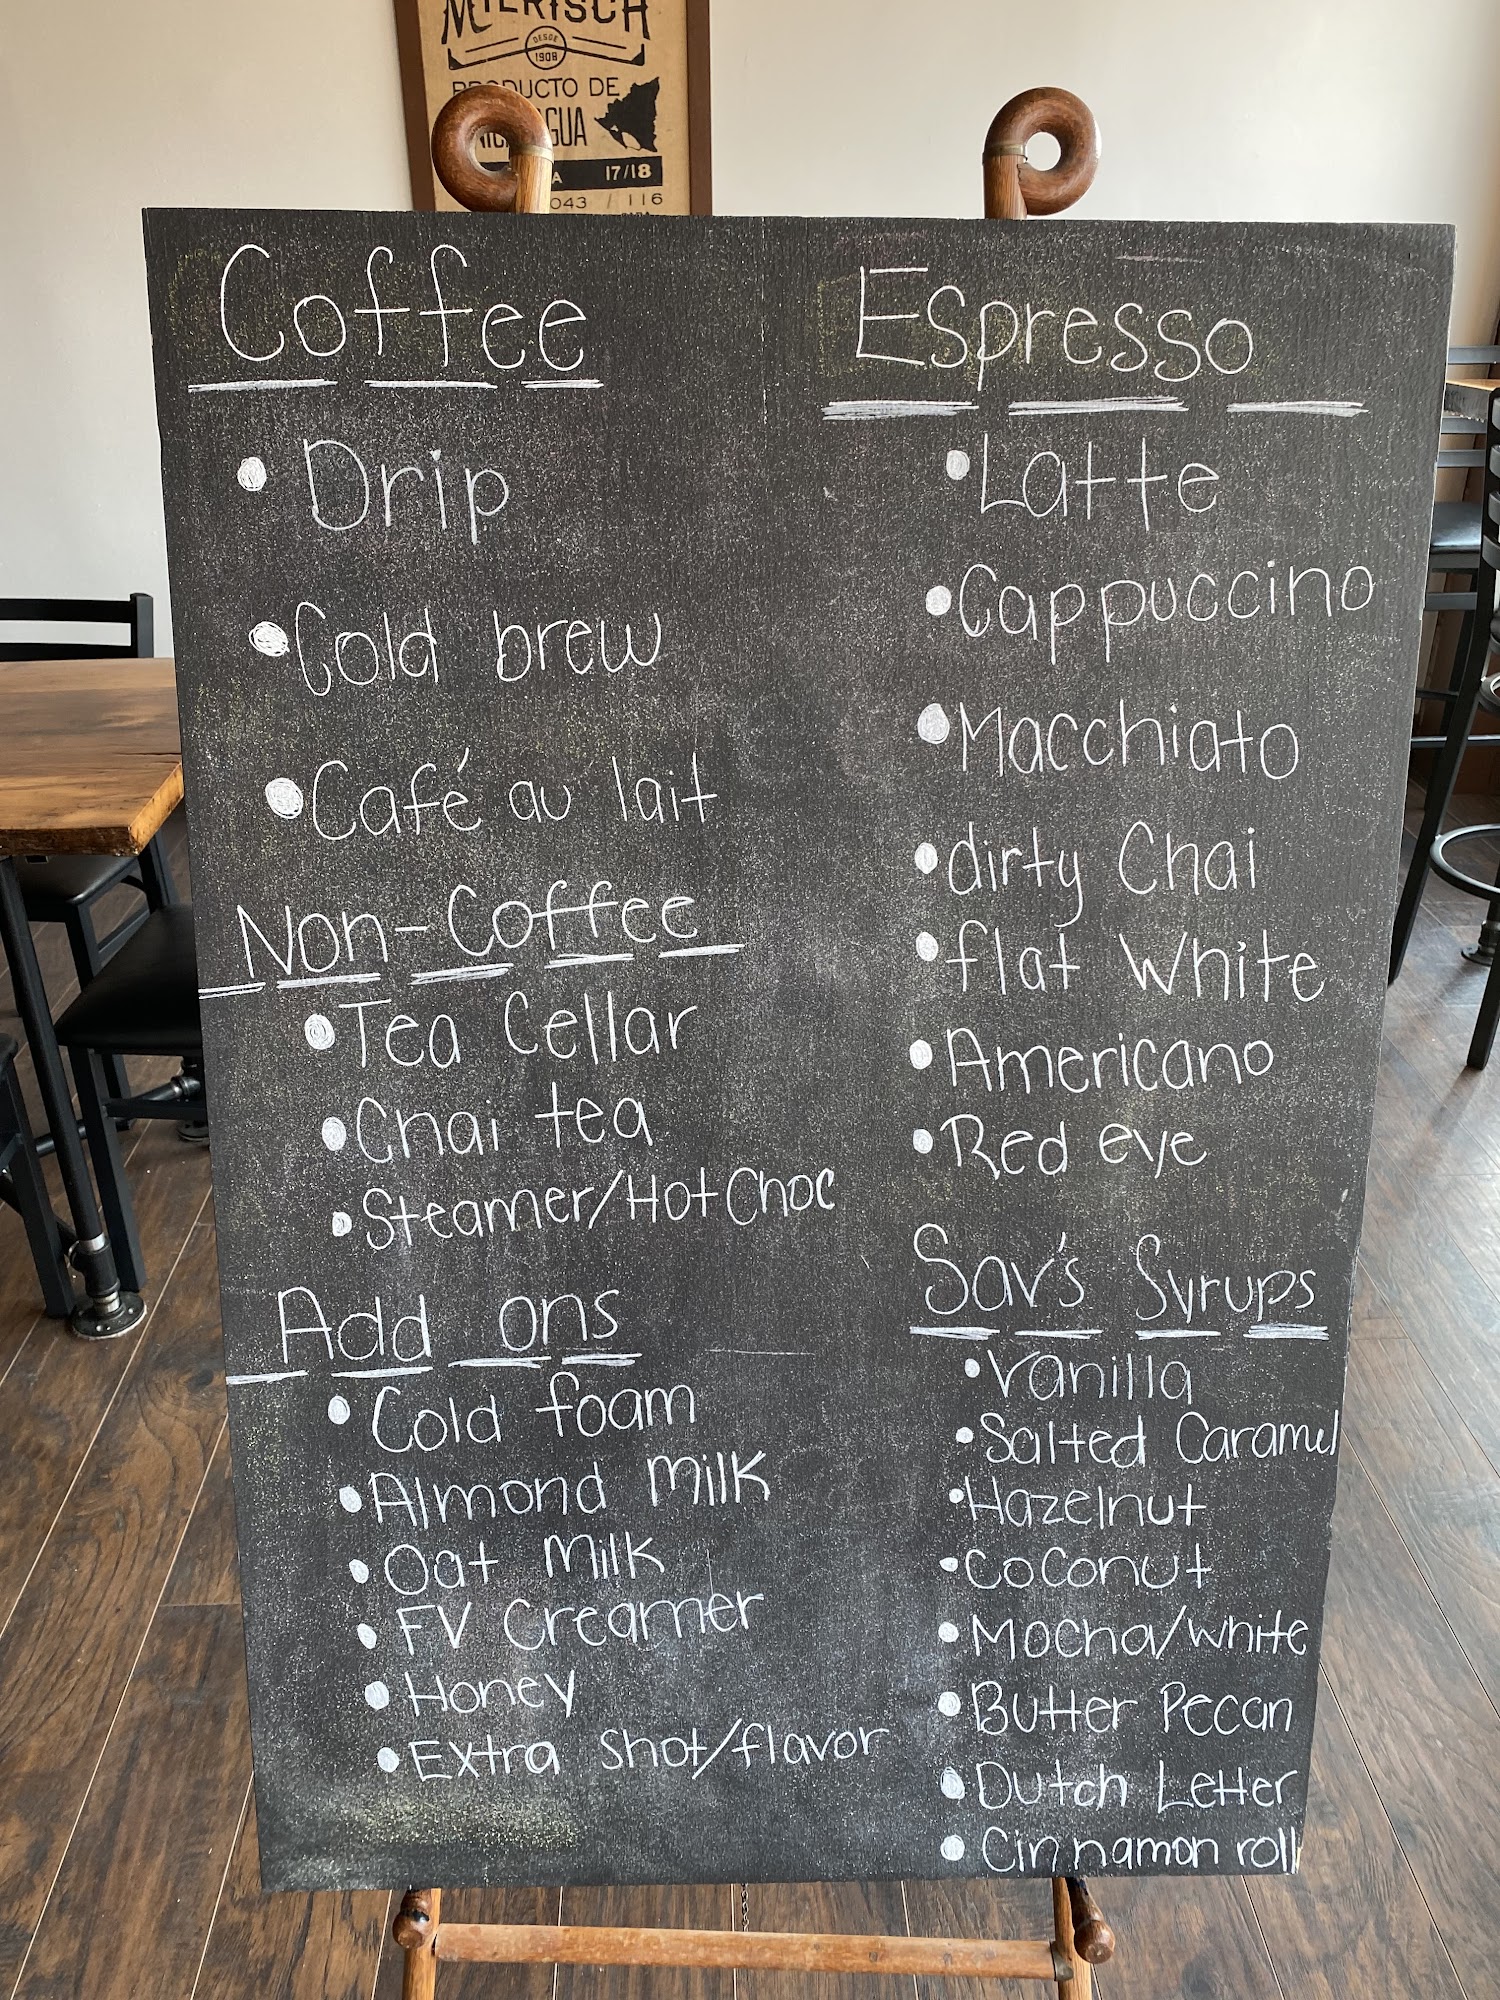 MIERISCH
DESDE
1908
PRODUCTO DE
17/18
043 / 116
Coffee
Drip
Cold brew
Café au lait
Non-Coffee
Tea Cellar
Chai tea
Steamer/Hot Choc
Add ons
Cold foam
Almond Milk
Oat Milk
FV Creamer
Honey
Extra Shot/flavor
Espresso
Latte
Cappuccino
Macchiato
dirty Chai
flat White
Americano
Red eye
Sav's Syrups
Vanilla
Salted Caramel
Hazelnut
Coconut
Mocha/white
Butter Pecan
Dutch Letter
Cinnamon roll